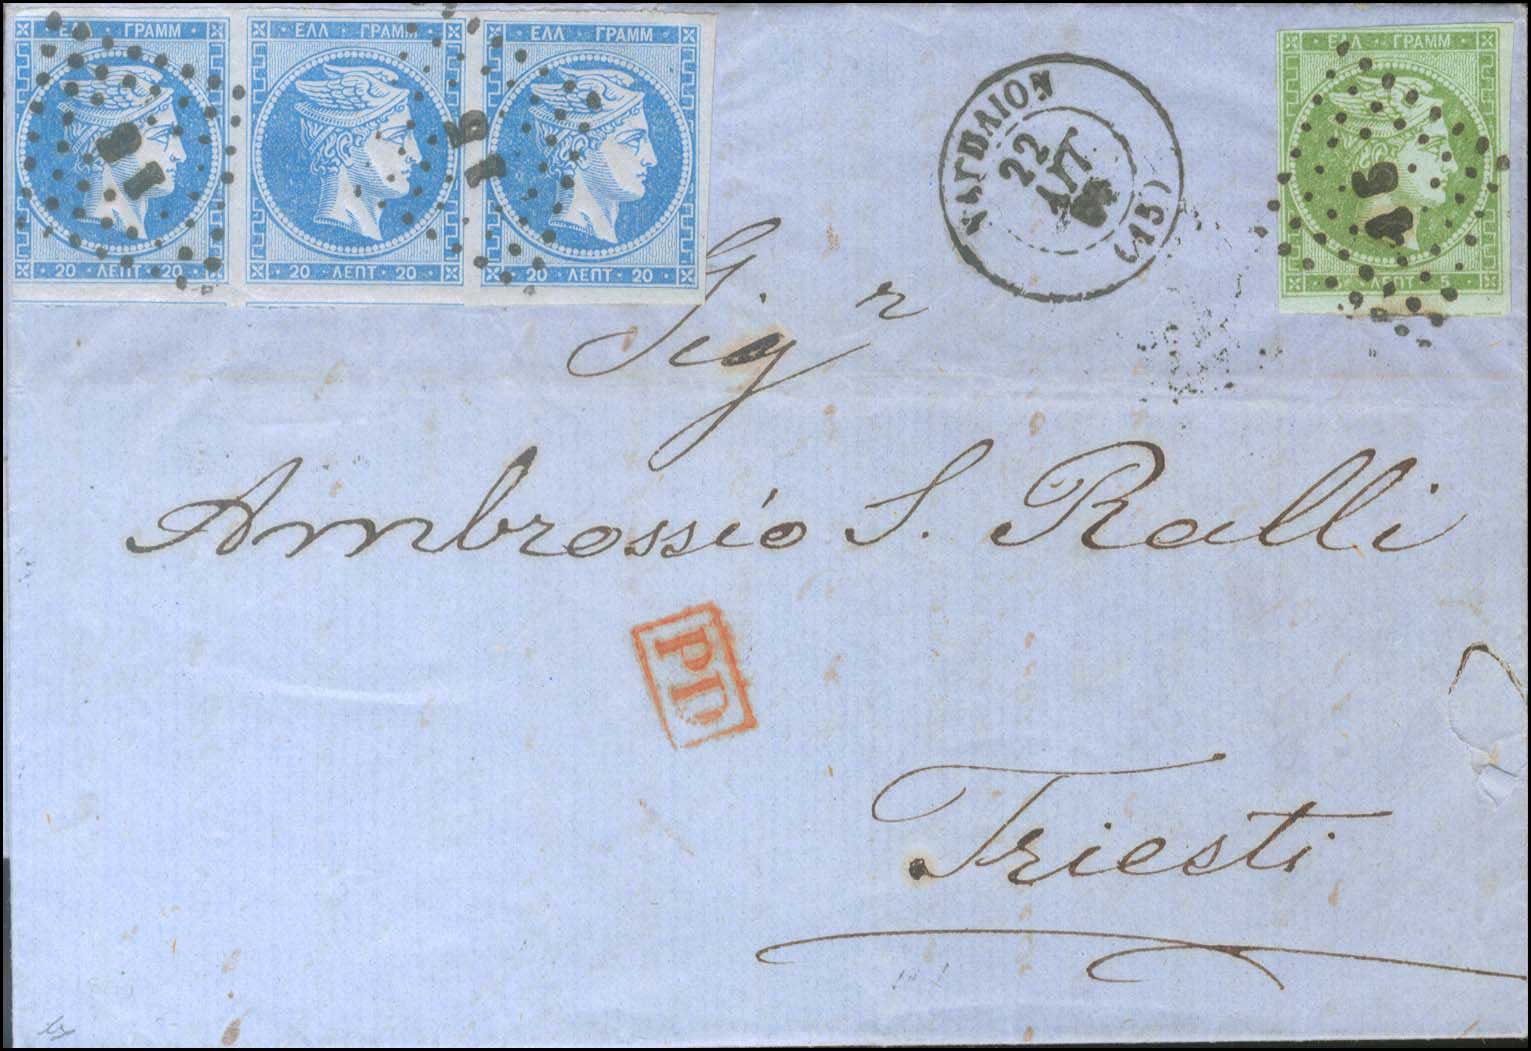 ΕΛΛ ΓΡΑΜΜ
20 ΛΕΠΤ 20
ΕΛΛ ΓΡΑΜΜ
20 ΛΕΠΤ 20
ΕΛΛ ΓΡΑΜΜ
20 ΛΕΠΤ 20
ΝΑΥΠΛΙΟΝ
22
ΑΥΓ
(15)
ΕΛΛ ΓΡΑΜΜ
ΛΕΠΤ 5
15
15
15
Sigr
Ambrossio S. Ralli
PD
Triesti